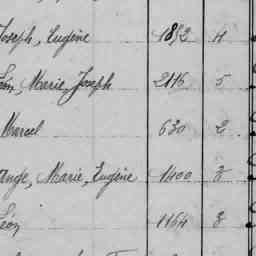 Joseph, Eugène 1892 4
Léon, Marie, Joseph 2116 5
Marcel 630 2
Ange, Marie, Eugène 1400 3
Léon 1164 3